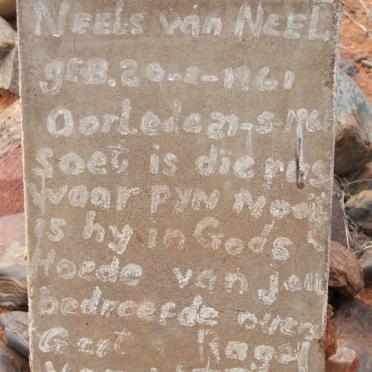 NEELS van NEEL
geB.20-8-1961
Oorlede 21-5-196
soet is die rus
waar pyn nooi
is hy in Gods
Hoede van jou
bedroefde ouers
Gert Ragel